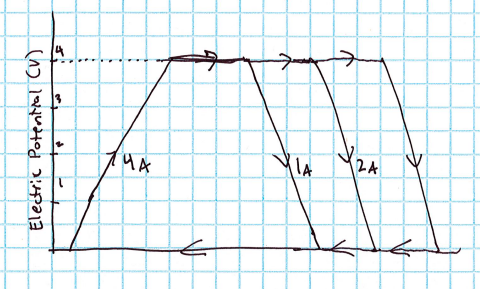 Electric Potential (V)
4
3
2
1
4A
1A
2A